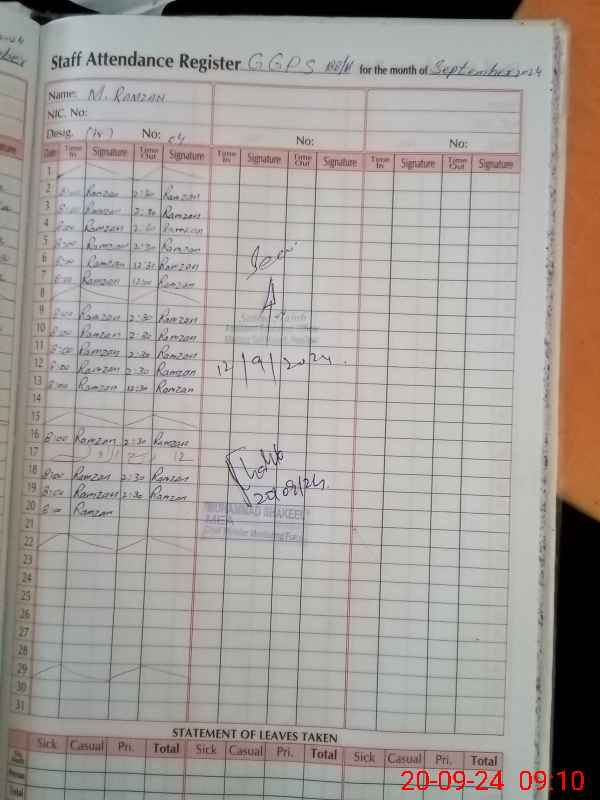 Staff Attendance Register GGPS for the month of September 2024
Name: M. RAMZAN
NIC. No:
Desig. (iv) No: 04 No: No:
Date Time In Signature Time Out Signature Time In Signature Time Out Signature Time In Signature Time Out Signature
1
2 8:00 Ramzan 2:30 Ramzan
3 8:00 Ramzan 2:30 Ramzan
4 8:00 Ramzan 2:30 Ramzan
5 8:00 Ramzan 2:30 Ramzan
6 8:00 Ramzan 12:30 Ramzan
7 8:00 Ramzan 12:00 Ramzan
8
9 8:00 Ramzan 2:30 Ramzan
10 8:00 Ramzan 2:30 Ramzan
11 8:00 Ramzan 2:30 Ramzan
12 8:00 Ramzan 2:30 Ramzan
12/9/2024
13 8:00 Ramzan 12:30 Ramzan
14
15
16 8:00 Ramzan 2:30 Ramzan
17
18 8:00 Ramzan 2:30 Ramzan
19 8:00 Ramzan 2:30 Ramzan
20/09/24
20 8:00 Ramzan
MUHAMMAD SHAKEEL
MEA
21
22
23
24
25
26
27
28
29
30
31
STATEMENT OF LEAVES TAKEN
Sick Casual Pri. Total Sick Casual Pri. Total Sick Casual Pri. Total
20-09-24 09:10